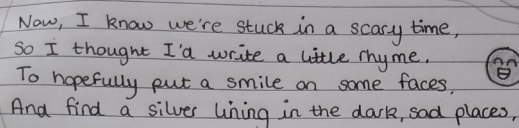 Now, I know we're stuck in a scary time,
So I thought I'd write a little rhyme.
To hopefully put a smile on some faces,
And find a silver lining in the dark, sad places,